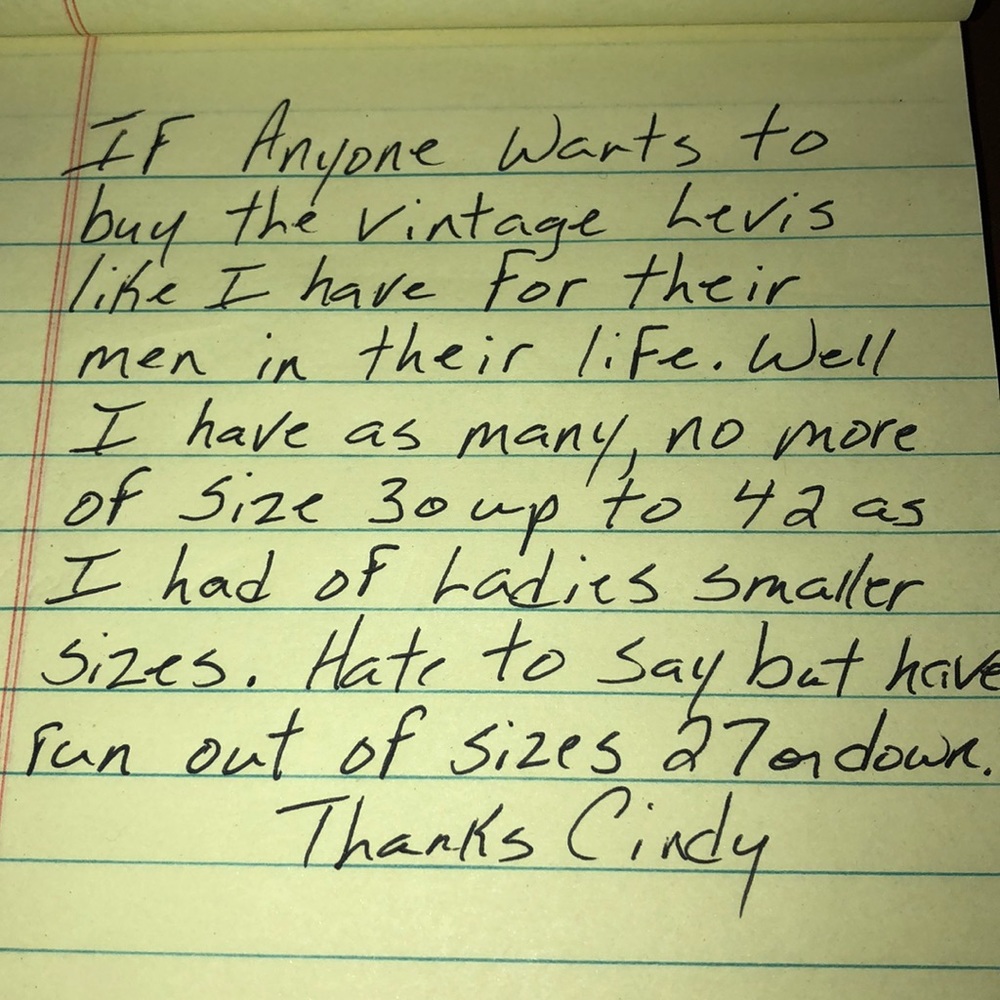 IF Anyone Wants to
buy the vintage Levis
like I have for their
men in their life. Well
I have as many, no more
of size 30 up to 42 as
I had of Ladies smaller
sizes. Hate to say but have
run out of sizes 27 on down.
Thanks Cindy